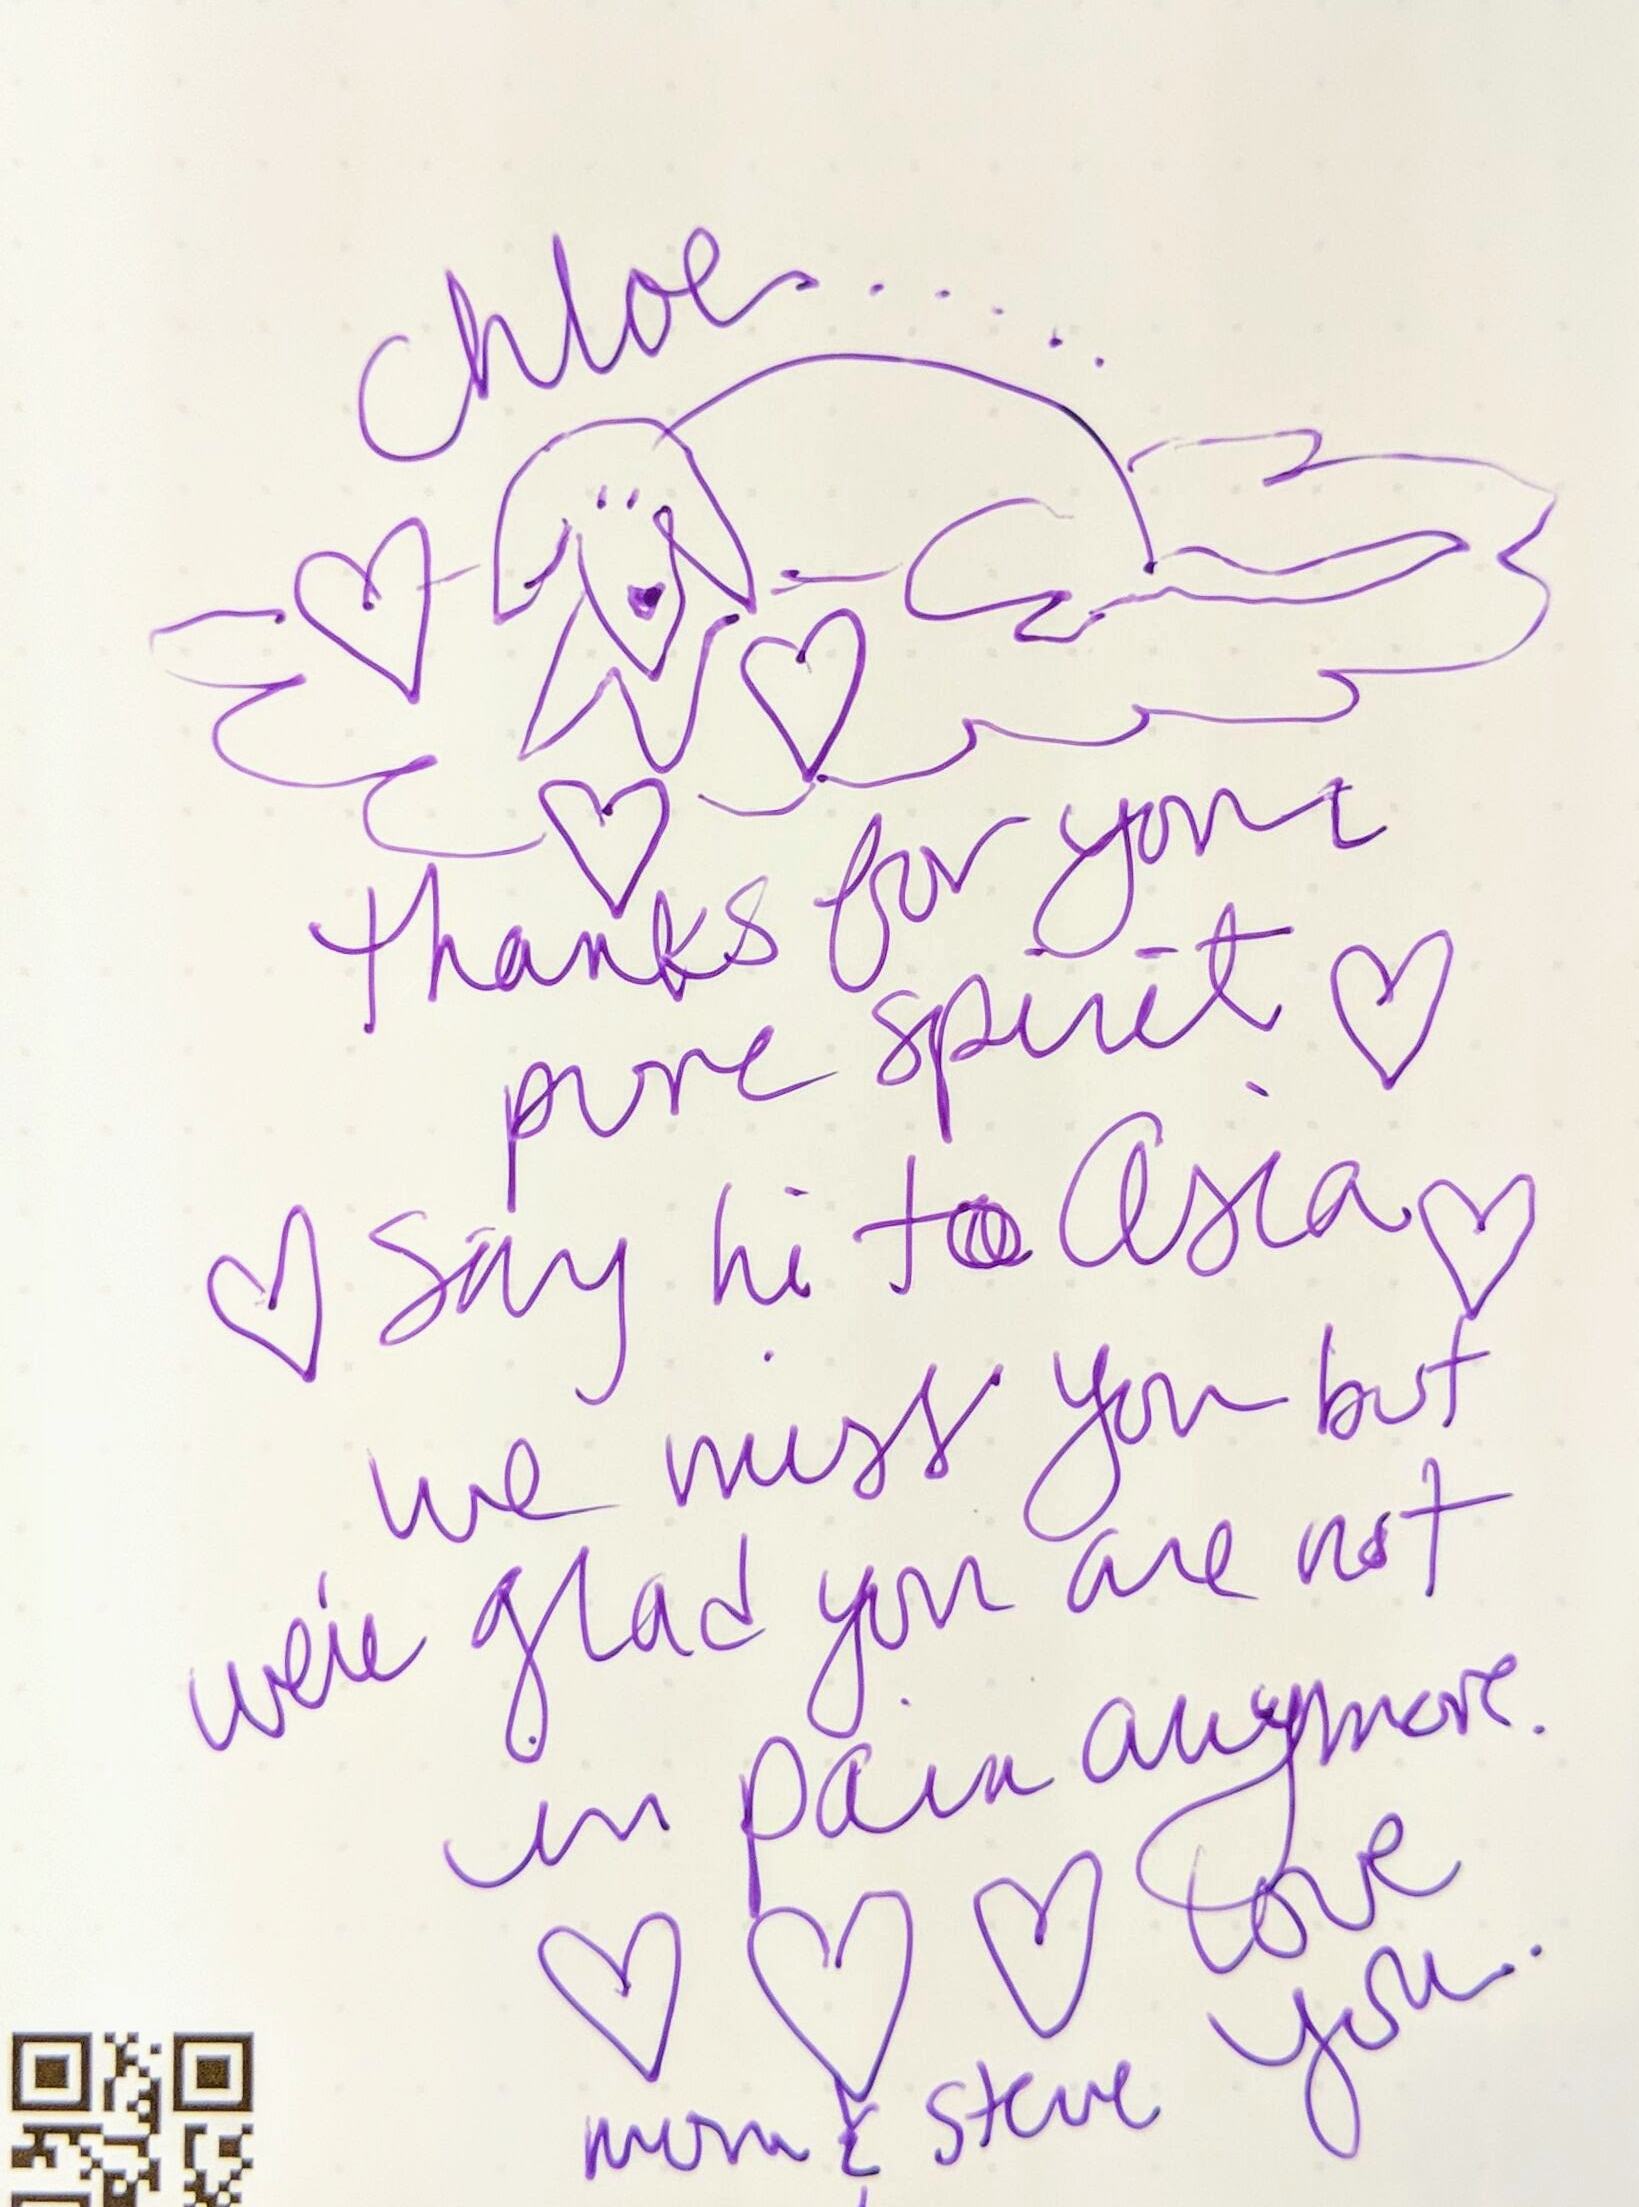 Chloe......
Thanks for your
pure spirit
Say hi to Asia
we miss you but
we're glad you are not
in pain anymore.
Love
you.
mom & Steve